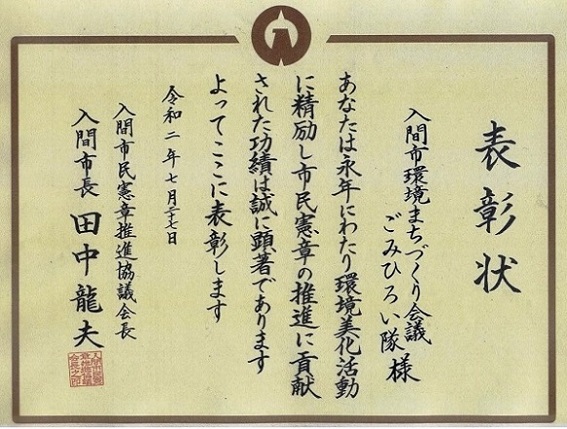 表彰状
入間市環境まちづくり会議
ごみひろい隊 様
あなたは永年にわたり環境美化活動
に精励し市民憲章の推進に貢献
された功績は誠に顕著であります
よってここに表彰します
令和二年七月二十七日
入間市民憲章推進協議会長
入間市長 田中龍夫